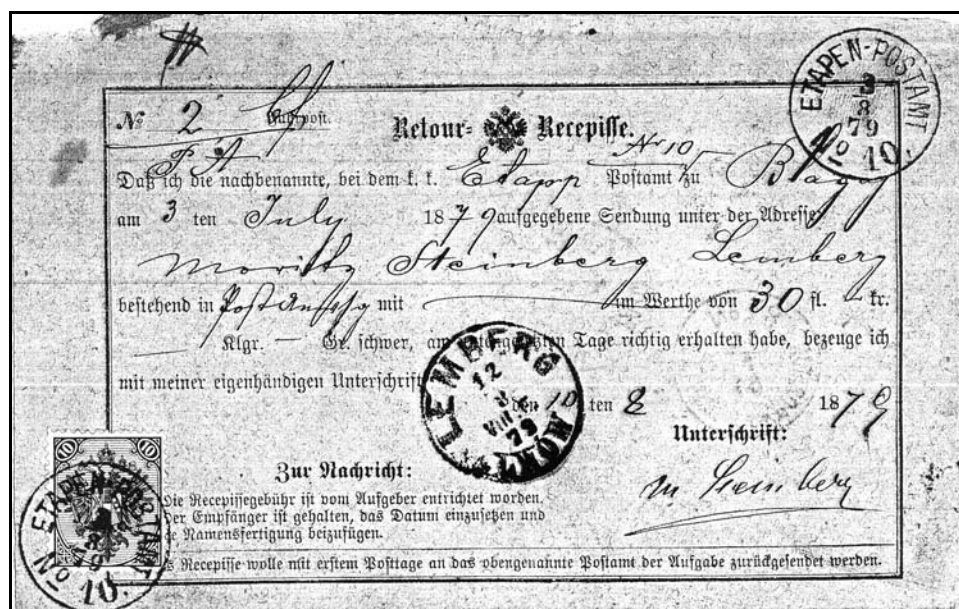 ETAPEN-POSTAMT
3
8
79
No 10.
No 2 Fahrpost.
Retour- Recepisse.
No 10
Daß ich die nachbenannte, bei dem k. k. Etapp Postamt zu
am 3 ten July 1879 aufgegebene Sendung unter der Adresse
Moritz Steinberg Lemberg
bestehend in mit im Werthe von 30 fl. – kr.
— Klgr. — Gr. schwer, am Tage richtig erhalten habe, bezeuge ich
mit meiner eigenhändigen Unterschrift
den 10 ten 8 1879
LEMBERG
12
8
VIII
79
Unterschrift:
M Steinberg
10 10
ETAPEN-POSTAMT
No 10.
Zur Nachricht:
Die Recepissegebühr ist vom Aufgeber entrichtet worden.
der Empfänger ist gehalten, das Datum einzusetzen und
Namensfertigung beizufügen.
Recepisse wolle mit erstem Posttage an das obengenannte Postamt der Aufgabe zurückgesendet werden.